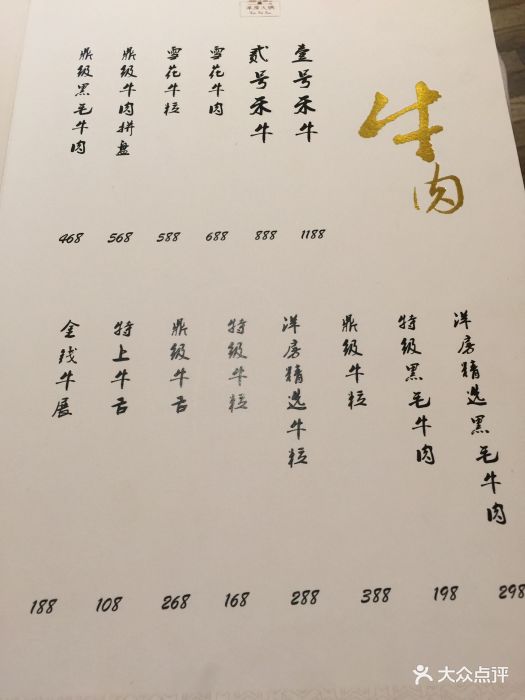 牛肉
壹号禾牛
1188
贰号禾牛
888
雪花牛肉
688
雪花牛粒
588
鼎级牛肉拼盘
568
鼎级黑毛牛肉
468
洋房精选黑毛牛肉
298
特级黑毛牛肉
198
鼎级牛粒
388
洋房精选牛粒
288
特级牛粒
168
鼎级牛舌
268
特上牛舌
108
金钱牛展
188
大众点评